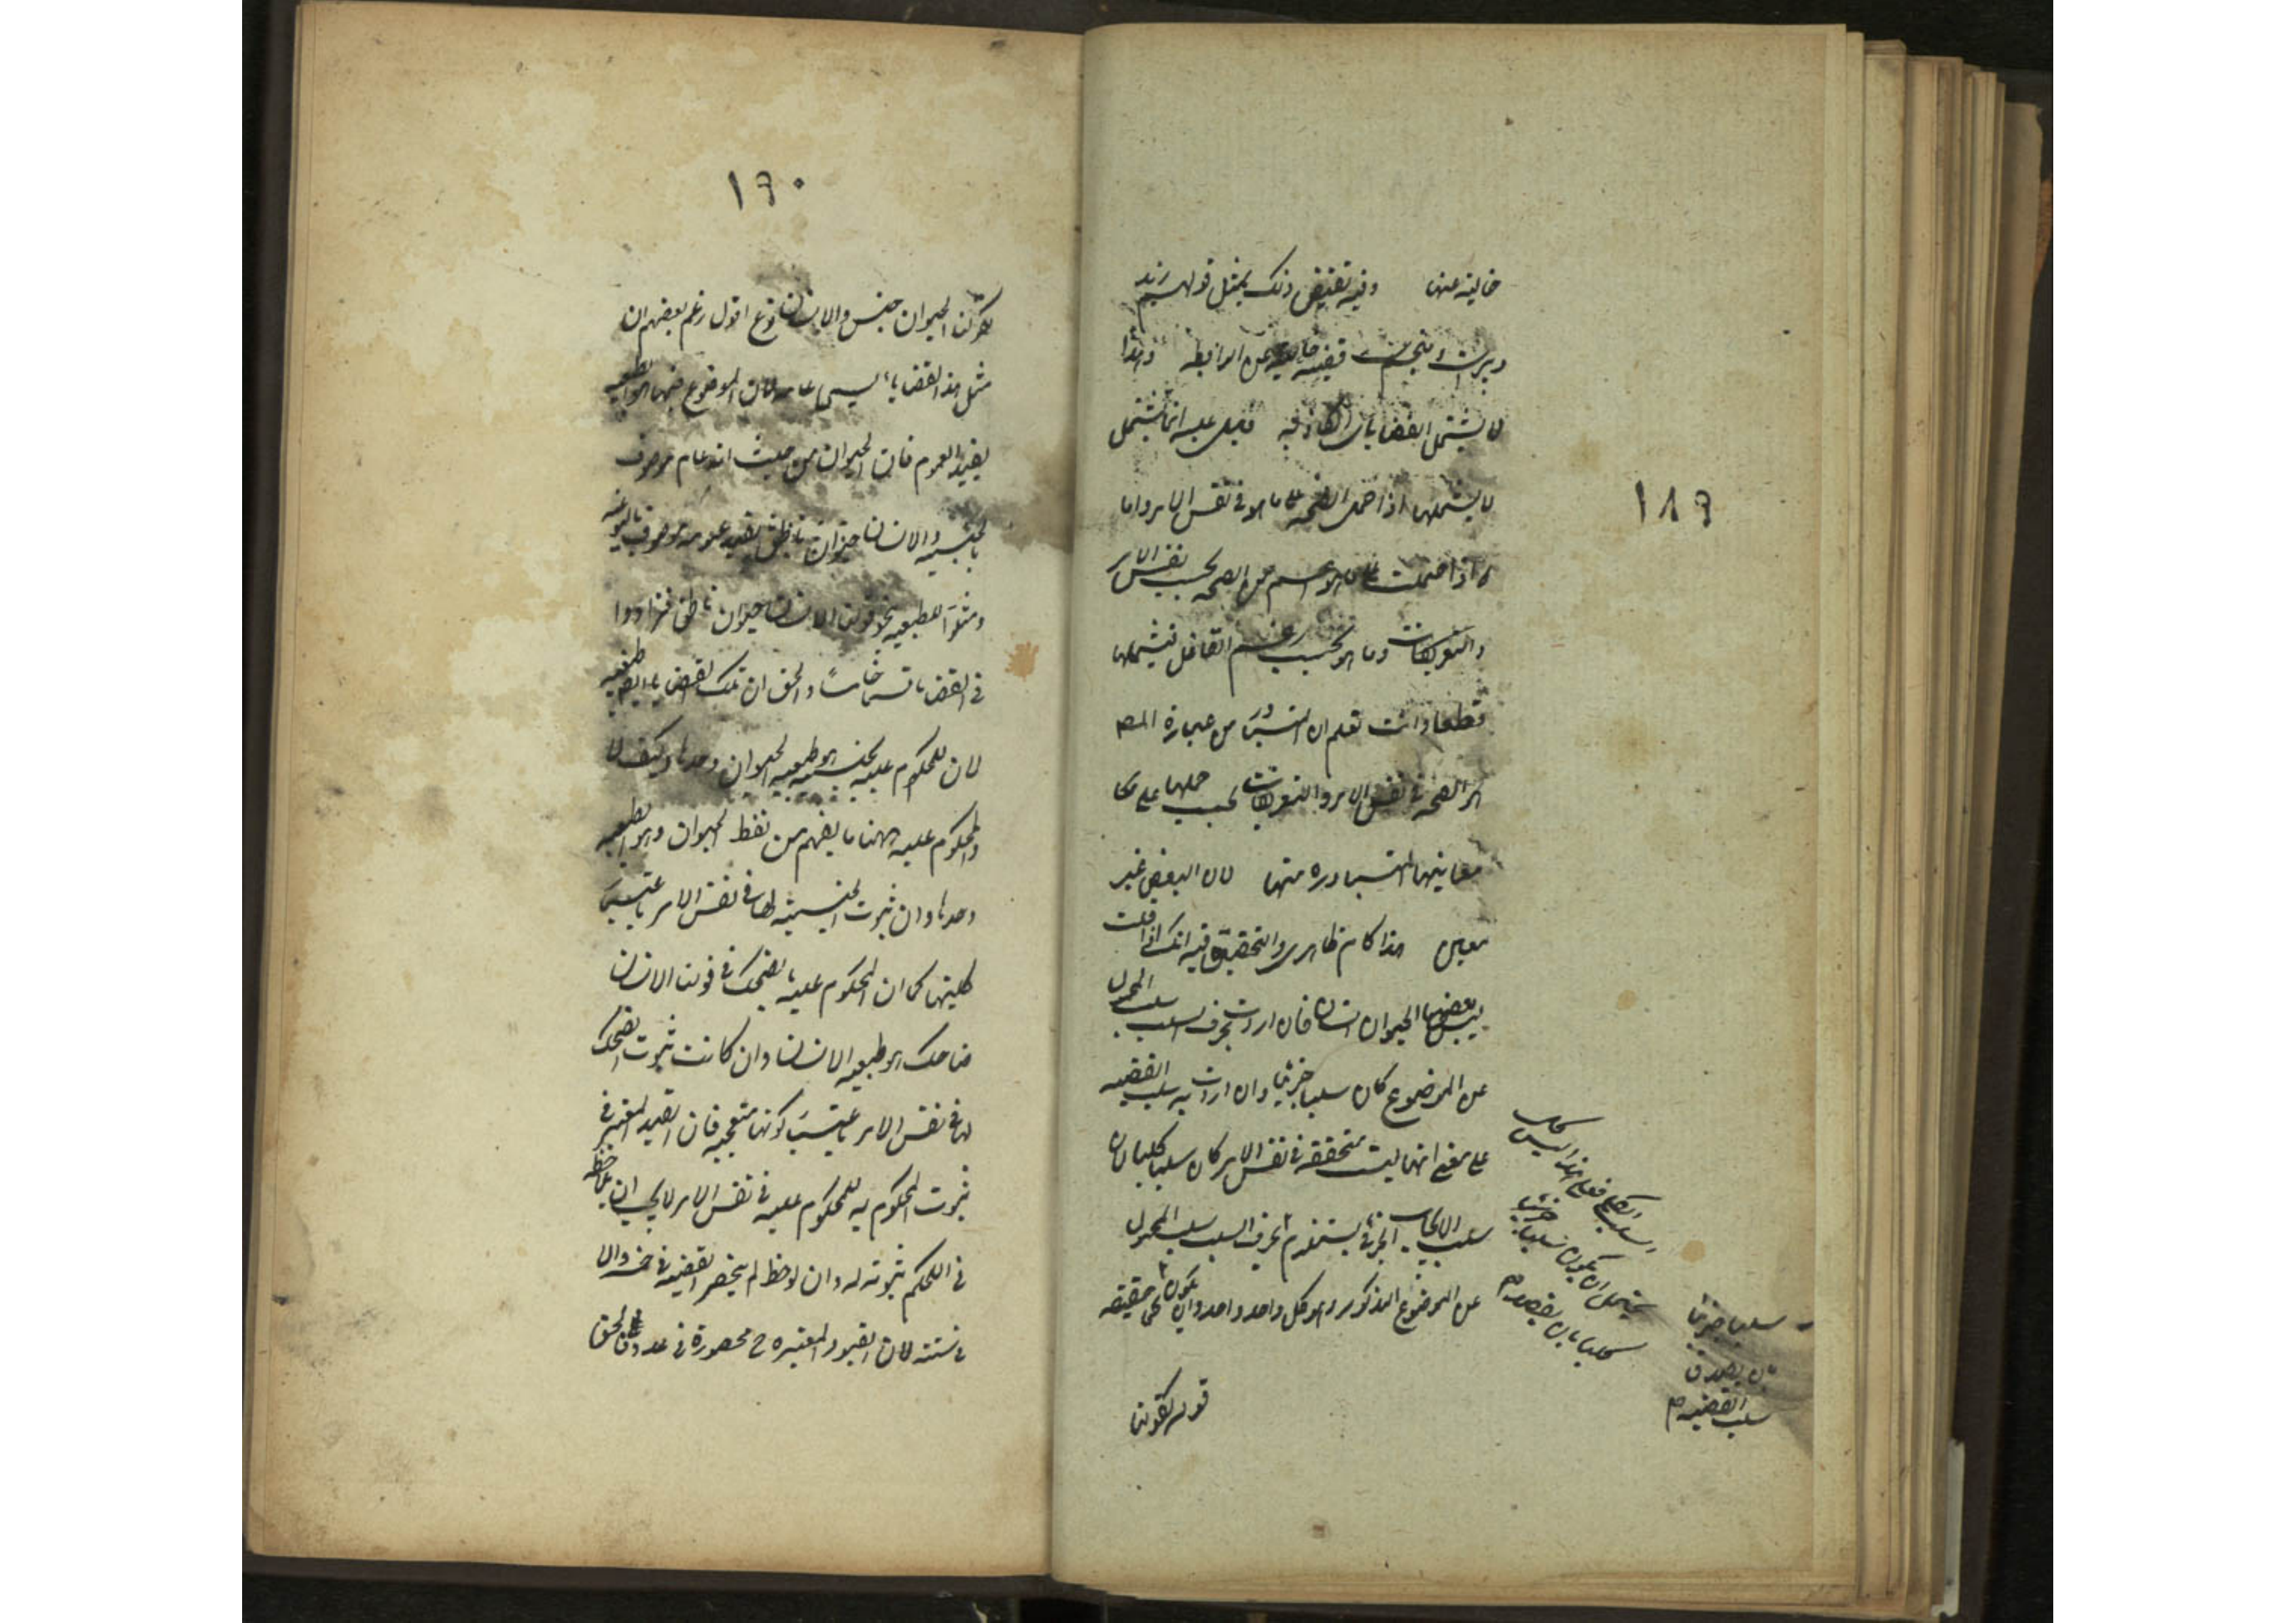 ١٨٩
خالية عنها وفيه نقيض ذلك بمثل قولهم زيد
دبيرست ومنجمست قضية خالية عن الرابطة وهذا
لا يشتمل القضايا الكاذبة قيل عليه انما يشتمل
لا يشملها اذا حمل الصحة على ما هو في نفس الامر واما
اذا حملت على ما هو اعم من الصحة بحسب نفس الامر
والتعريفات وما هو بحسب زعم القائل فيشملها
قطعا وانت تعلم ان المتبادر من عبارة المصـ
هو الصحة في نفس الامر والتعريفات يجب حملها على
معانيها المتبادرة منها لان البعض غير
معين هذا كلام ظاهري والتحقيق فيه انك اذا قلت
ليس بعض الحيوان انسان فان اردت بحرف السلب سلب المحمول
عن الموضوع كان سلبا جزئيا وان اردت به سلب القضية
على معنى انها ليست متحققة في نفس الامر كان سلبا كليا لان
سلب الايجاب الجزئي يستلزم سلب المحمول
عن الموضوع المذكور وهو كل واحد واحد وان يكون على حقيقته
قوله كقولنا
سلب الكلي فعلى هذا ليس كل
يحتمل ان يكون سلبا جزئيا
كليا بان يقصد به
سلبا جزئيا
بان يصدق
سلب القضية م
١٩٠
كقولنا الحيوان جنس والانسان نوع اقول زعم بعضهم ان
مثل هذه القضايا يسمى عامة لان الموضوع فيها هو الطبيعة
بقيد العموم فان الحيوان من حيث انه عام موصوف
بالجنسية والانسان حيوان ناطق بقيد عمومه موصوف بالنوعية
ومثلوا للطبيعية بنحو قولنا الانسان حيوان ناطق فزادوا
في القضايا قسما خامسا والحق ان تلك القضايا ايضا طبيعية
لان المحكوم عليه بالجنسية هو طبيعة الحيوان وحدها وكيف لا
والمحكوم عليه ههنا ما يفهم من لفظ الحيوان وهو الطبيعة
وحدها وان ثبوت الجنسية لها في نفس الامر باعتبار
كليتها كما ان المحكوم عليه بالضحك في قولنا الانسان
ضاحك هو طبيعة الانسان وان كانت ثبوت الضحك
لها في نفس الامر باعتبار كونها متعجبة فان القيد المعتبر في
ثبوت المحكوم به للمحكوم عليه في نفس الامر لا يجب ان يلاحظ
في الحكم بثبوته له وان لوحظ لم ينحصر القضية في خمسة والا
في ستة لان القيود المعتبرة ح محصورة في عدد فالحق